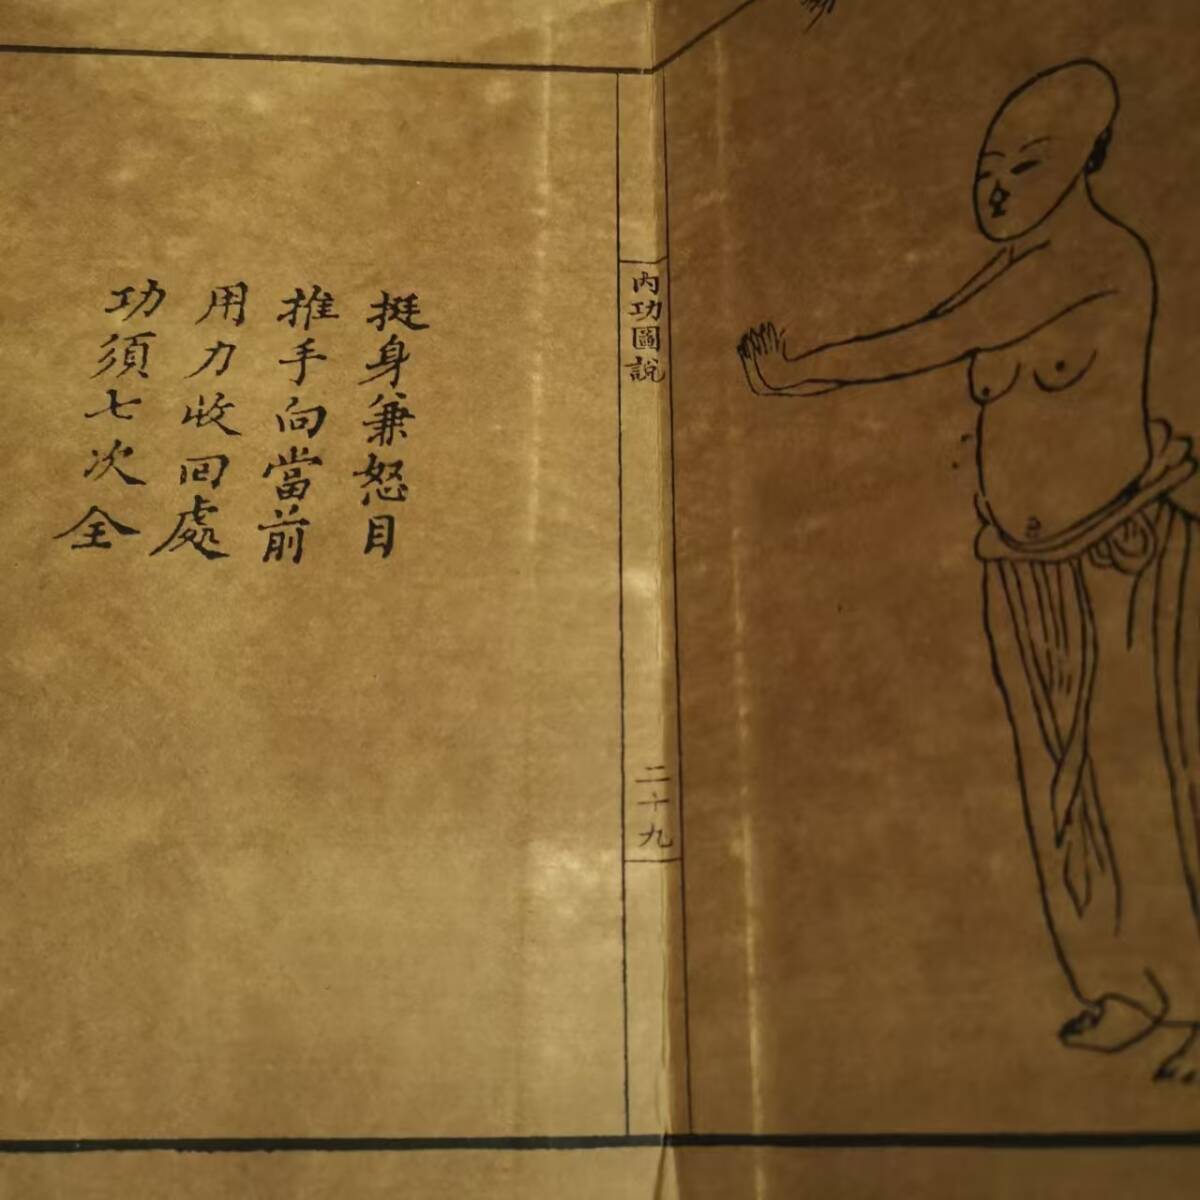 內功圖說
二十九
挺身兼怒目
推手向當前
用力收回處
功須七次全